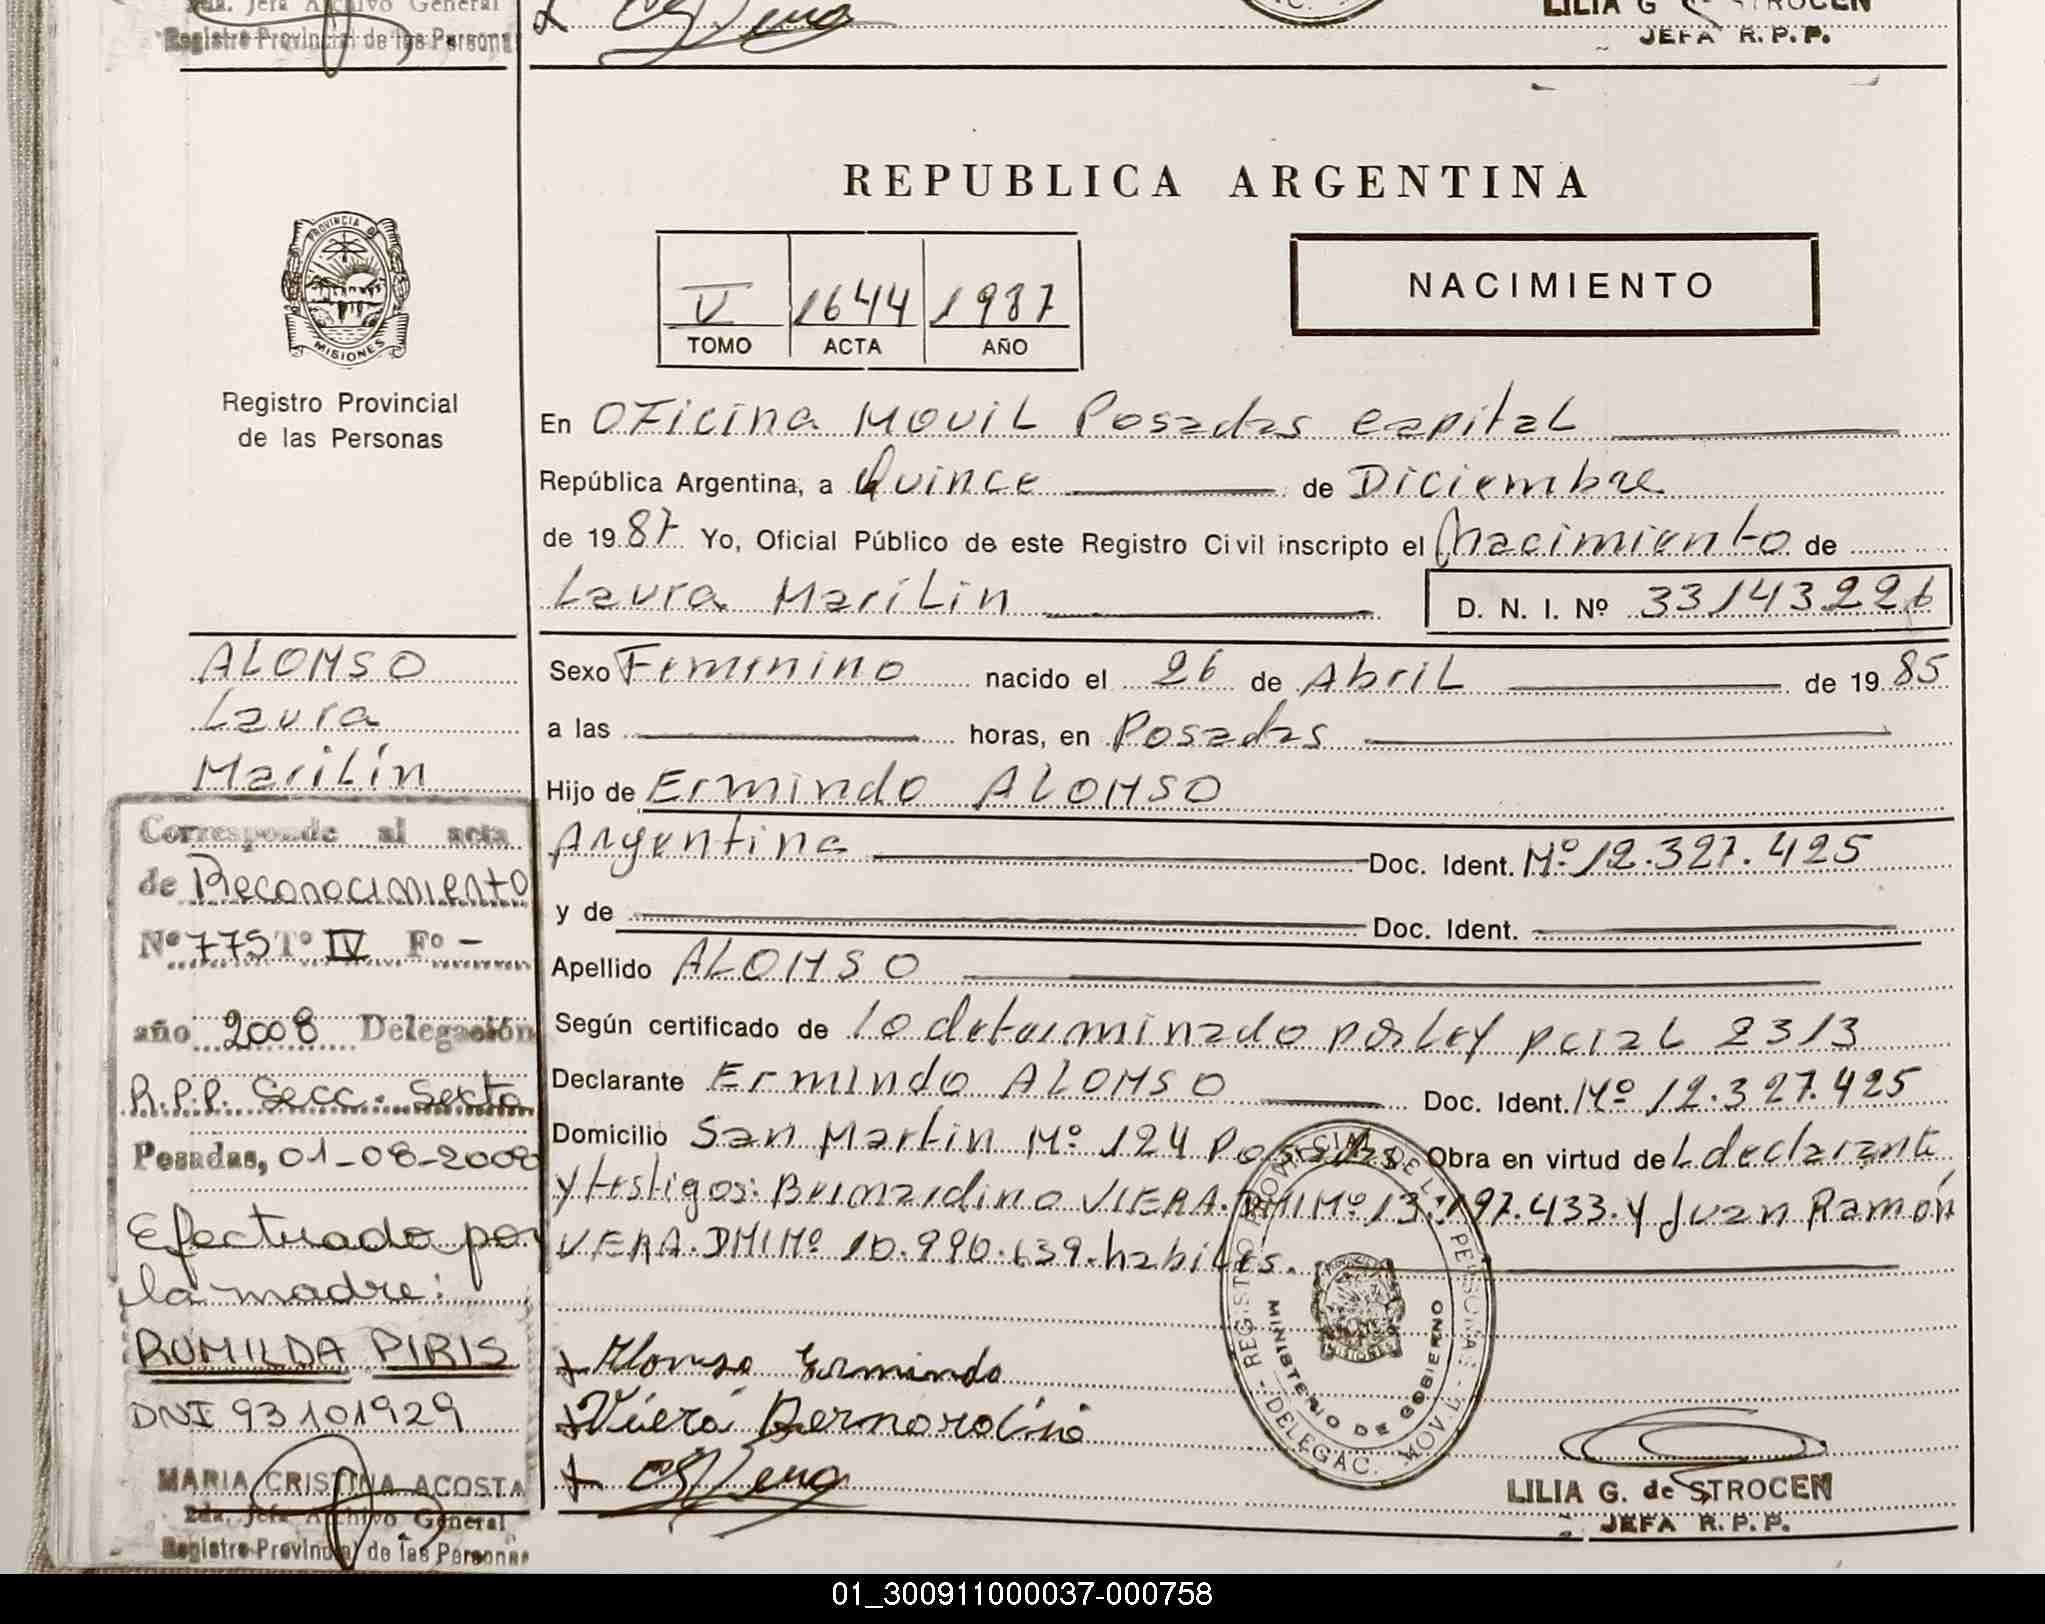 2da. Jefa Archivo General
Registro Provincial de las Personas
LILIA G. de STROCEN
JEFA R. P. P.
REPUBLICA ARGENTINA
PROVINCIA D
MISIONES
Registro Provincial
de las Personas
V 1644 1987
TOMO ACTA AÑO
NACIMIENTO
En Oficina Movil Posadas capital
República Argentina, a Quince de Diciembre
de 19 87 Yo, Oficial Público de este Registro Civil inscripto el Nacimiento de
Laura Marilin D. N. I. Nº 33143226
ALONSO
Laura
Marilín
Sexo Feminino nacido el 26 de Abril de 19 85
a las horas, en Posadas
Hijo de Ermindo ALONSO
Argentina Doc. Ident. Nº 12.327.425
y de Doc. Ident.
Apellido ALONSO
Según certificado de lo determinado por Ley pcial 2313
Declarante Ermindo ALONSO Doc. Ident. Nº 12.327.425
Domicilio San Martin Nº 124 Posadas Obra en virtud de L declarante
y testigos: Bernardino VIERA. DNI Nº 13.197.433. y Juan Ramón
VERA. DNI Nº 10.990.639. habiles.
Corresponde al acta
de Reconocimiento
Nº 775 Tº IV Fº -
año 2008 Delegación
R.P.P. Secc. Sexta
Posadas, 01-08-2008
Efectuado por
la madre:
ROMILDA PIRIS
DNI 93101929
MARIA CRISTINA ACOSTA
2da. Jefa Archivo General
Registro Provincial de las Personas
Alonso Ermindo
Viera Bernardino
REGISTRO PROVINCIAL DE L PERSONAS - DELEGAC. MOVIL
MINISTERIO DE GOBIERNO
MISIONES
LILIA G. de STROCEN
JEFA R. P. P.
01_300911000037-000758